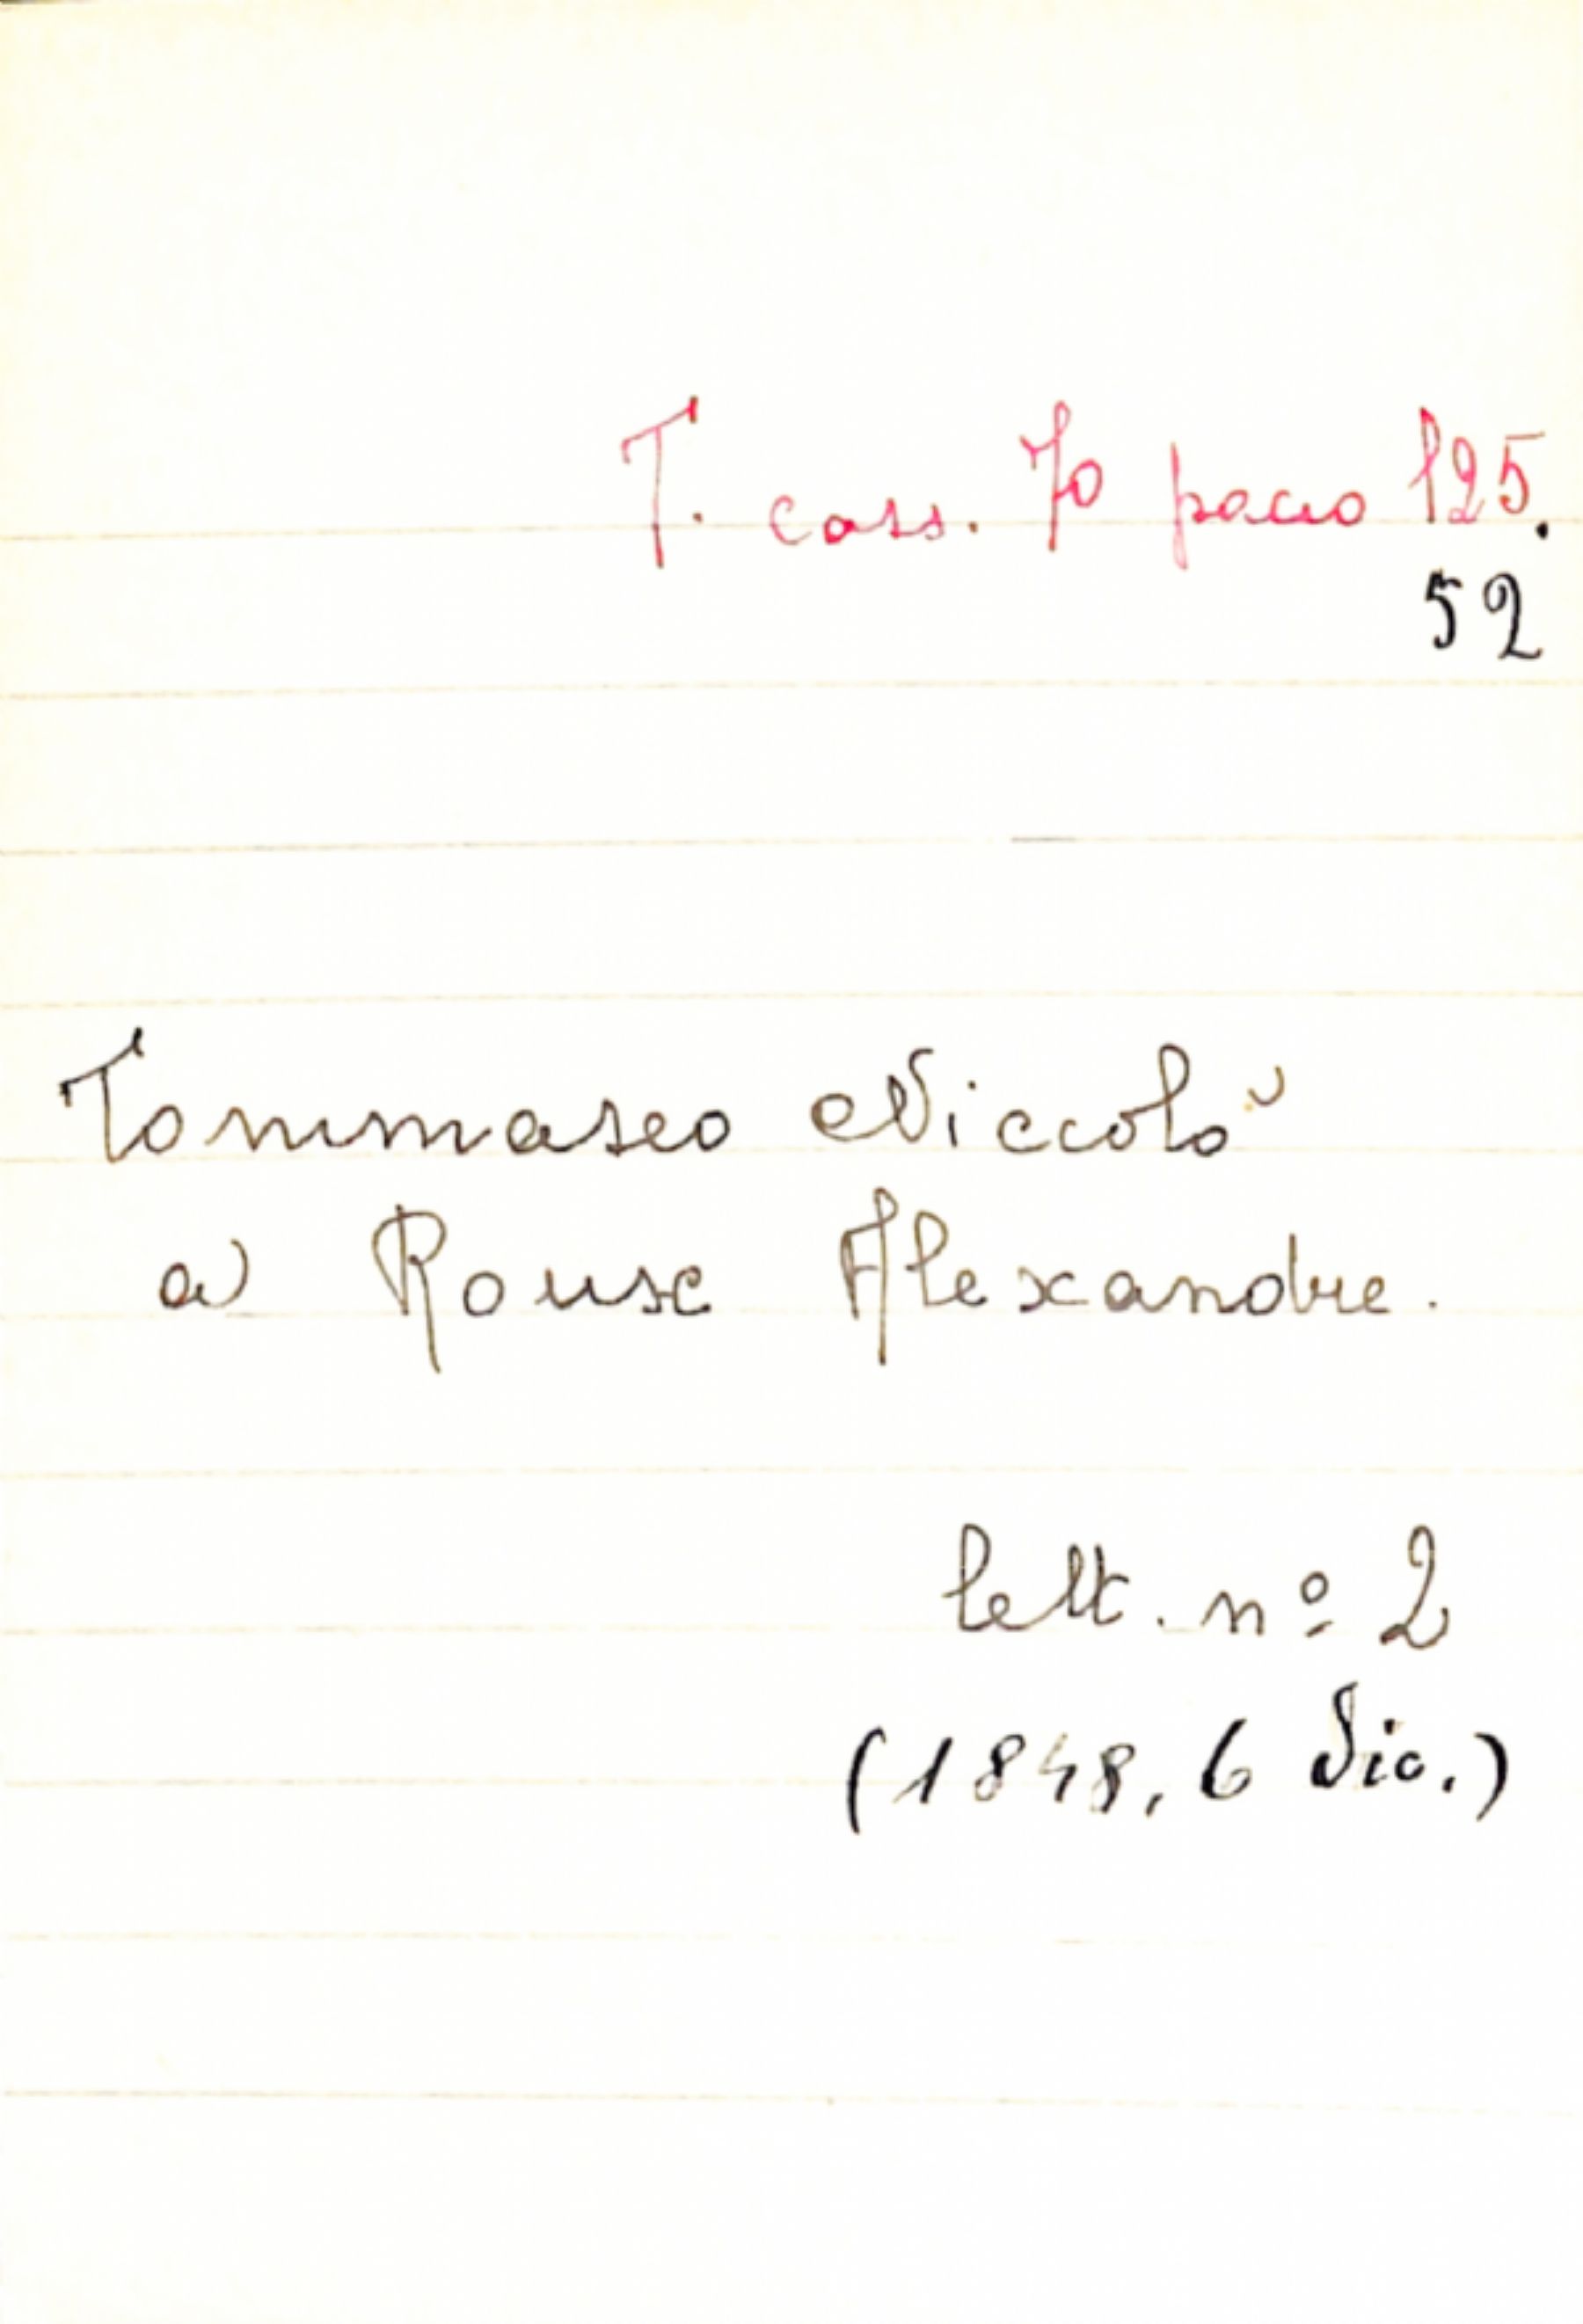 T. cass. 70 pacco 125.
52
Tommaseo Niccolò
a Rousc Alexandre.
lett. nº 2
(1848, 6 Dic.)